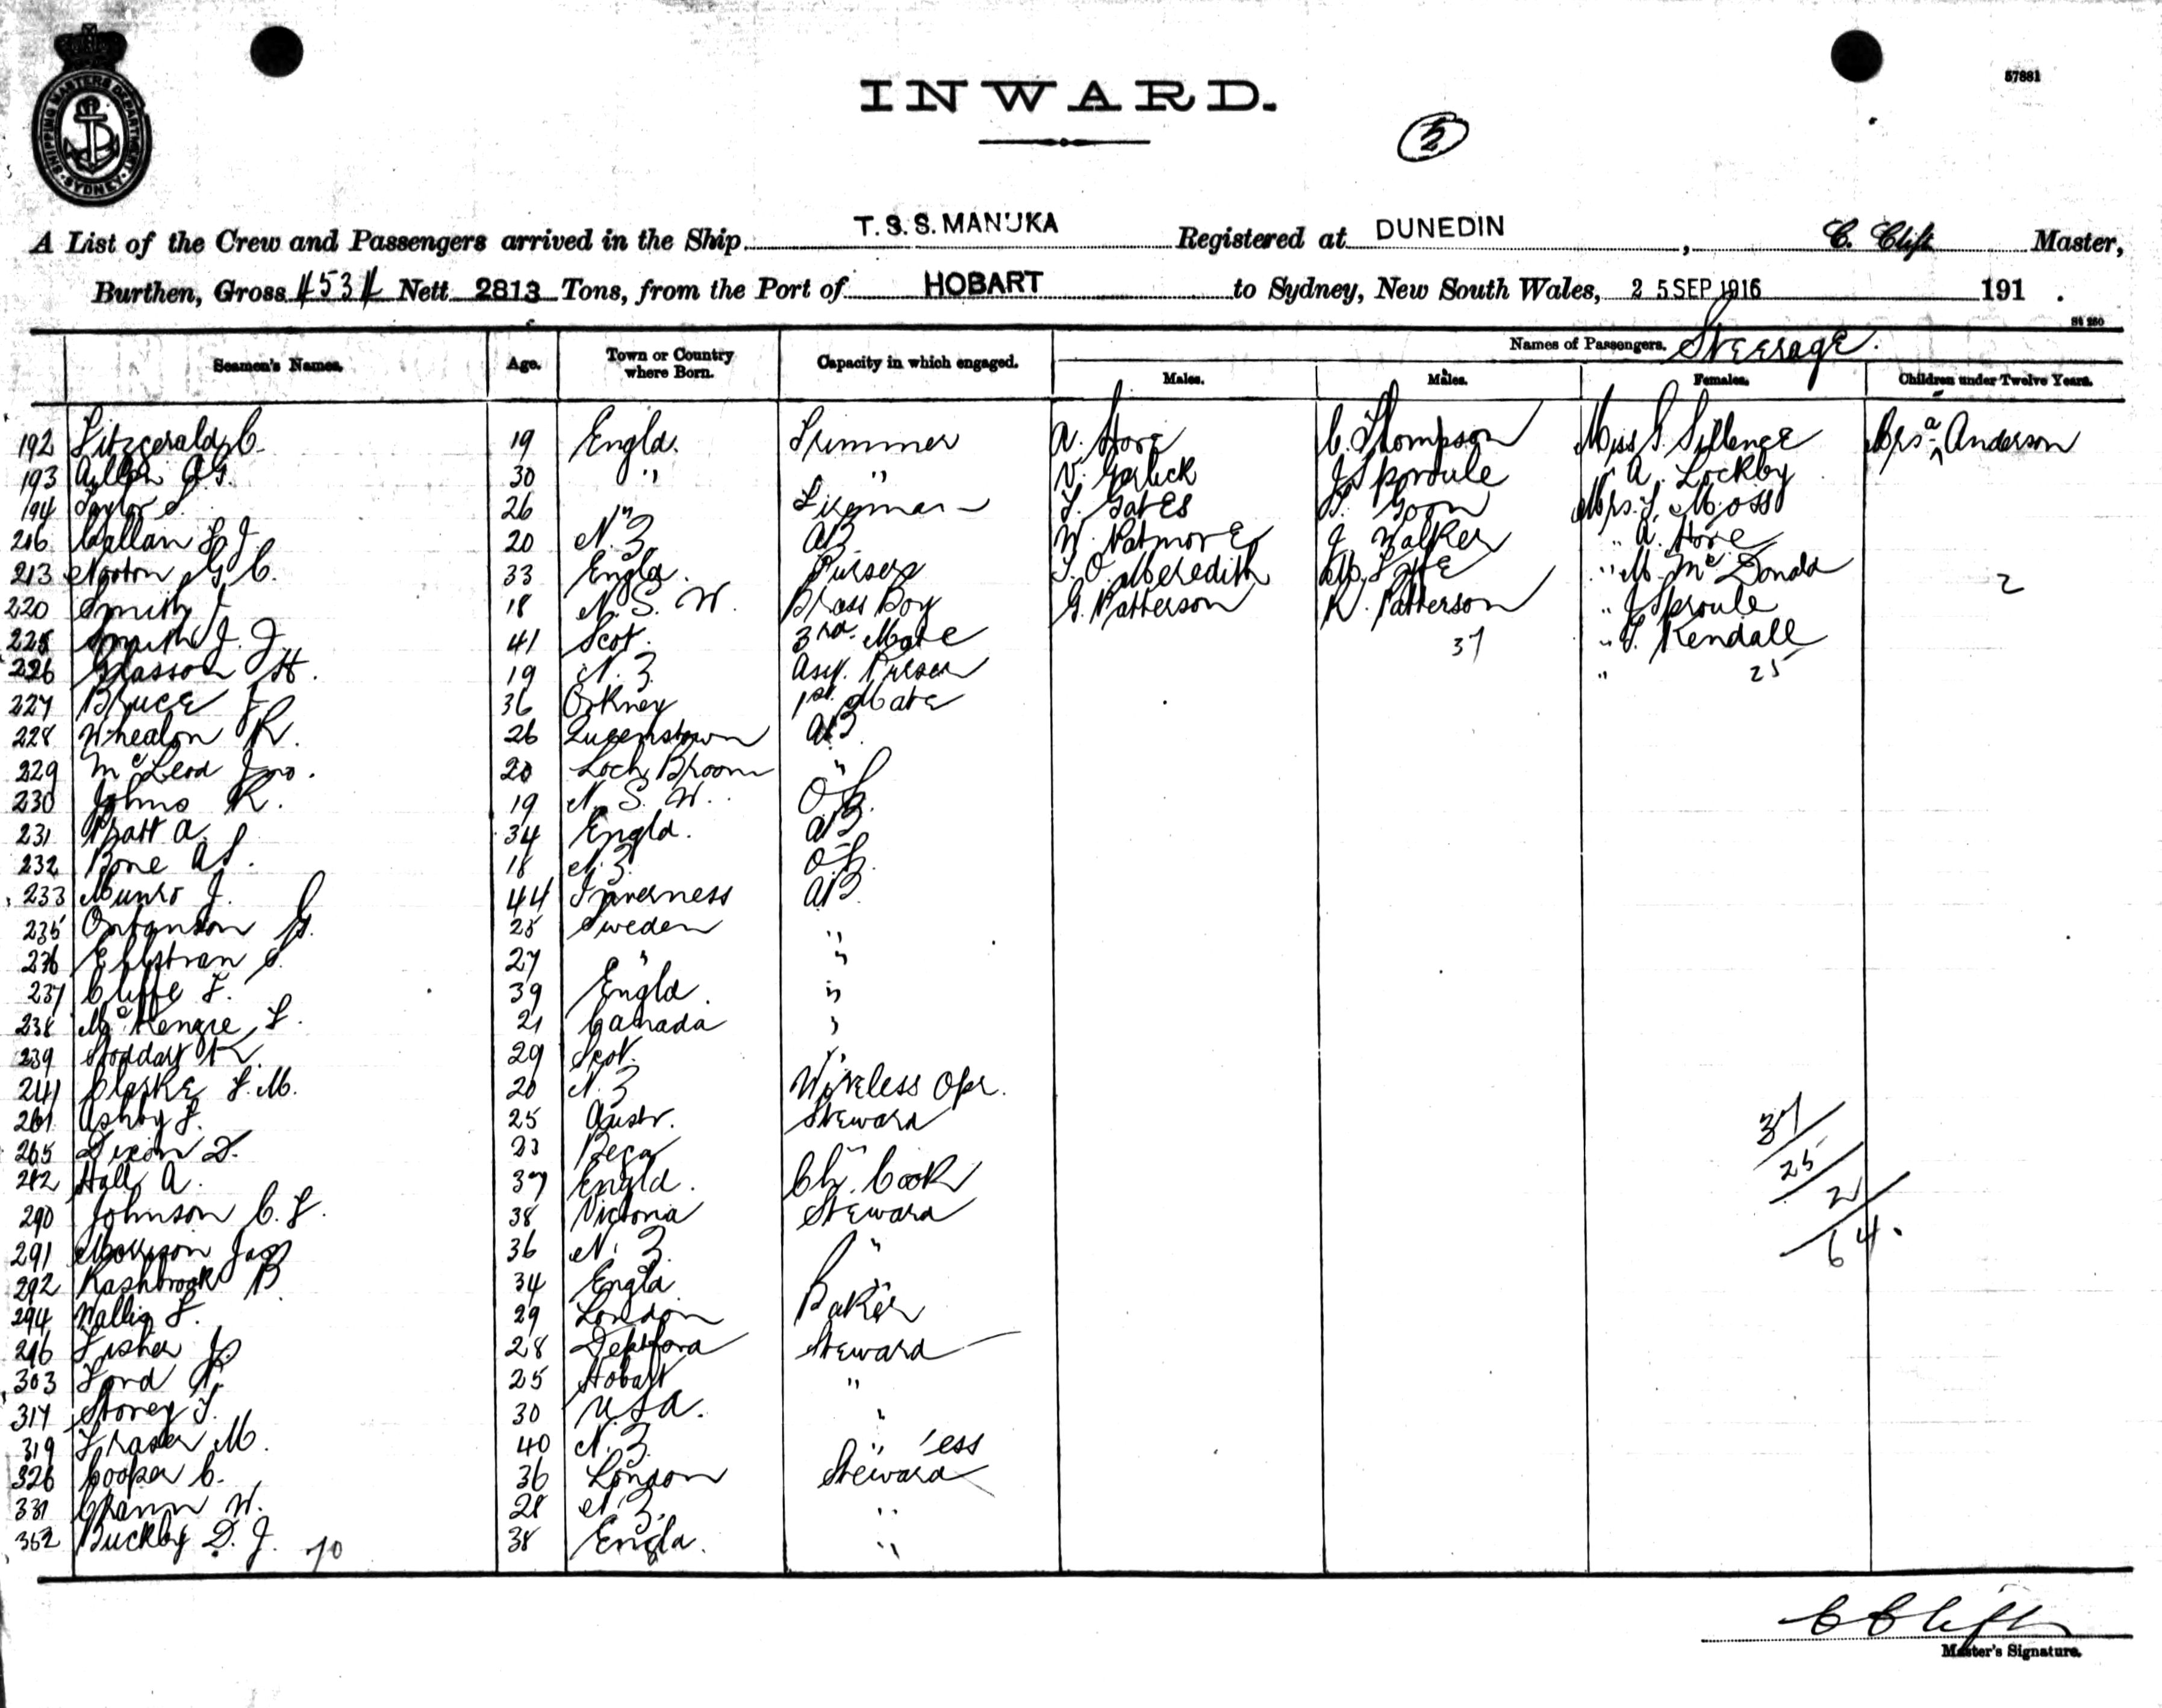 SHIPPING MASTERS DEPARTMENT · SYDNEY ·
57881
INWARD.
A List of the Crew and Passengers arrived in the Ship T.S.S. MANUKA Registered at DUNEDIN, C. Clift Master,
Burthen, Gross 4534 Nett 2813 Tons, from the Port of HOBART to Sydney, New South Wales, 25 SEP 1916 191 .
St 250
Seamen's Names. Age. Town or Country where Born. Capacity in which engaged. Names of Passengers. Steerage.
Males. Males. Females. Children under Twelve Years.
192 Fitzgerald C. 19 Engld. Trimmer A. Hore C. Thompson Miss S. Sillence Mrs a Anderson
193 Allen A.G. 30 " " V. Garlick J Sproule " A. Lockby
194 Taylor S. 26 " Fireman T. Gates Goon Mrs. T. Moss
206 Callan L. J. 20 N.Z AB W. Patmore J Walker " A. Hore
213 Norton G C. 33 Engld. Purser T. O. Meredith " M. McDonald
220 Smith F 18 N. S. W. Brass Boy G. Patterson R. Patterson " J Sproule 2
225 Smith J. J. 41 Scot. 3rd. Mate 37 " T. Kendall
226 Glasson H. 19 N.Z. Asst. Purser " 25
227 Bruce J 36 Orkney 1st. Mate
228 Whealon R. 26 Queenstown AB
229 McLeod Jno. 20 Loch Broom "
230 Johns R. 19 N. S. W. OS.
231 Pratt A. 34 Engld. AB
232 Bone A S. 18 N.Z. OS.
233 Munro J. 44 Inverness AB
235 G. 25 Sweden "
236 Ellstran S. 27 " "
237 Cliffe F. 39 Engld. "
238 McKenzie F. 21 Canada "
239 Stoddart R. 29 Scot. "
241 Clarke F.M. 20 N.Z Wireless Opr.
261 Ashby F. 25 Austr. Steward
265 Dixon D. 23 Bega "
282 Hall A. 37 Engld. Ch. Cook
290 Johnson C. F. 38 Victoria Steward
291 Morrison Jas 36 N.Z. "
292 Rashbrook B 34 Engld "
294 Wallis F. 29 London Baker
296 Fisher J. 28 Deptford Steward
303 Ford R. 25 Hobart "
317 Storey T. 30 U.S.A. "
319 Fraser M. 40 N.Z. " 'ess
326 Cooper C. 36 London Steward
331 Crann W. 28 N.Z. "
352 Buckby D. J. 38 Engld. "
70
37
25
2
64.
C Clift
Master's Signature.